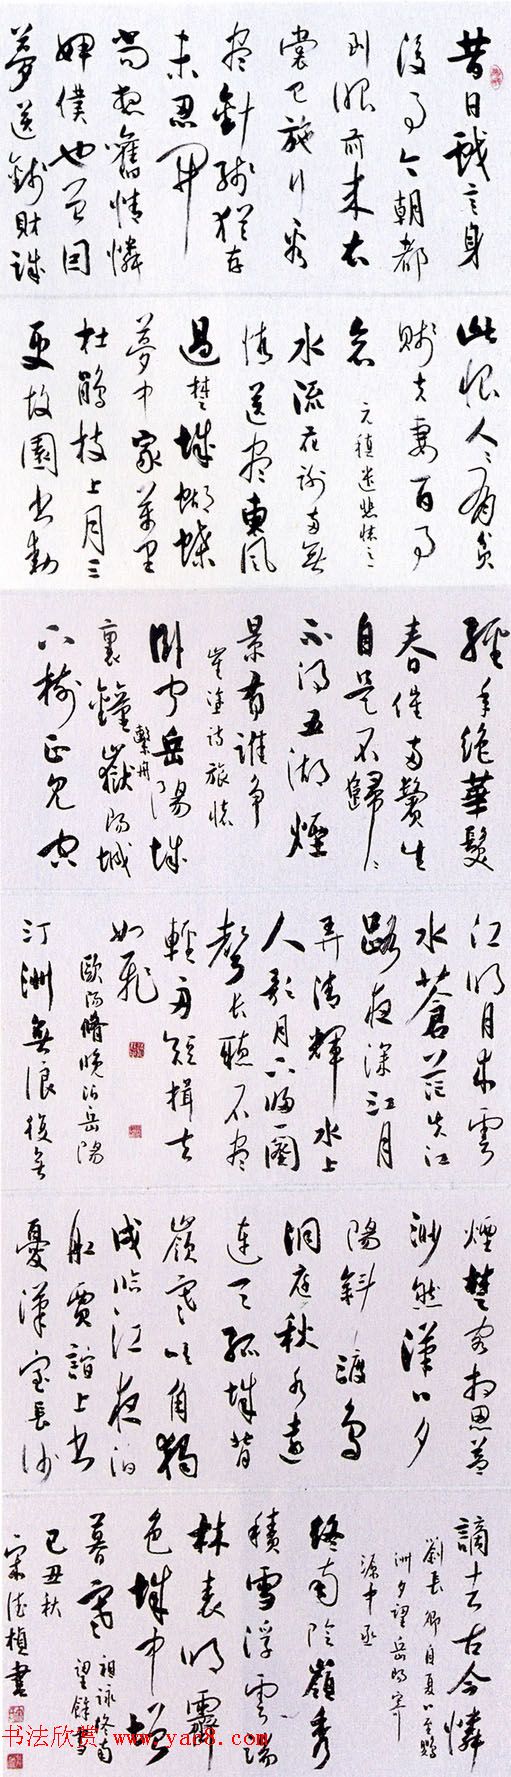 昔日戲言身
後事今朝都
到眼前來衣
裳已施行看
盡針線猶存
未忍開
尚想舊情憐
婢僕也曾因
夢送錢財誠
此恨人人有貧
賤夫妻百事
哀 元稹遣悲懷之二
水流花謝兩無
情送盡東風
過楚城蝴蝶
夢中家萬里
杜鵑枝上月三
更故園書動
經年絕華髮
春催兩鬢生
自是不歸歸
不得五湖煙
景有誰爭
崔塗詩旅懷
臥聞岳陽城
裏鐘繫舟嶽陽城
下樹正見空
江明月來雲
水蒼茫失江
路夜深江月
弄清輝水上
人歌月下歸一闋
聲長聽不盡
輕舟短楫去
如飛
歐陽脩晚泊岳陽
汀洲無浪復無
煙楚客相思益
渺然漢口夕
陽斜渡鳥
洞庭秋水遠
連天孤城背
嶺寒吹角獨
戍臨江夜泊
船賈誼上書
憂漢室長沙
謫去古今憐
劉長卿自夏口至鸚
洲夕望岳陽寄
源中丞
終南陰嶺秀
積雪浮雲端
林表明霽
色城中增
暮寒 祖詠終南
望餘雪
己丑秋
宋德楨書
书法欣赏 www.yac8.com